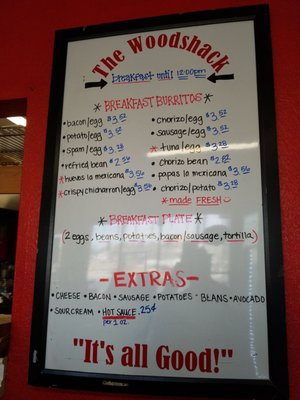 The Woodshack
breakfast until 12:00pm
* BREAKFAST BURRITOS *
• bacon/egg $3.52
• potato/egg $3.52
• spam/egg $3.28
• refried bean $2.56
* huevos la mexicana $3.56
* crispy chicharron/egg $3.56
• chorizo/egg $3.52
• sausage/egg $3.52
* tuna/egg $3.28
• chorizo bean $2.82
• papas la mexicana $3.56
• chorizo/potato $3.28
* made FRESH
* BREAKFAST PLATE *
(2 eggs, beans, potatoes, bacon/sausage, tortilla)
-EXTRAS-
• CHEESE • BACON • SAUSAGE • POTATOES • BEANS • AVOCADO
• SOUR CREAM • HOT SAUCE .25¢
per 1 oz.
"It's all Good!"